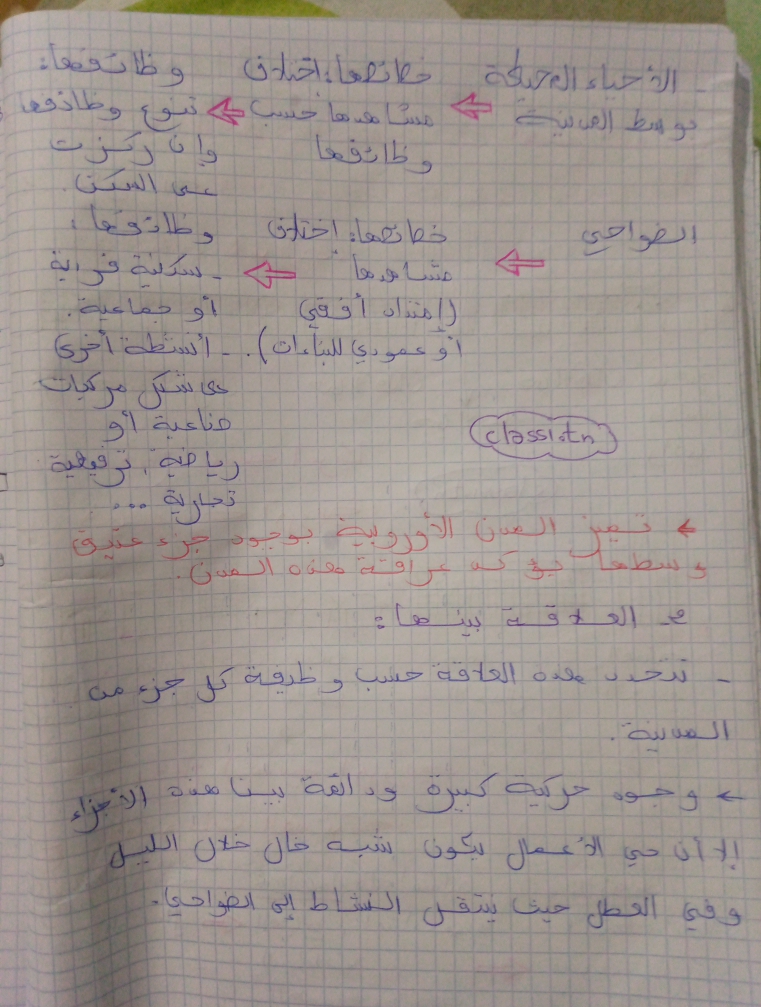 - الأحياء المحيطة خصائصها: اختلاف وظائفها:
بوسط المدينة ← مشاهدها حسب ← تنوع وظائفها
وظائفها وإن ركزت
على السكن.
الضواحي خصائصها: إختلاف وظائفها:
← مشاهدها ← - سكنية فردية
(إمتداد أفقي أو جماعية.
أو عمودي للبناءات). - أنشطة أخرى
على شكل مركبات
صناعية أو
رياضية، ترفيهية
تجارية ...
classi.tn
← تتميز المدن الأوروبية بوجود جزء عتيق
وسطها يؤكد عراقة هذه المدن.
2- العلاقة بينها:
- تتحدد هذه العلاقة حسب وظيفة كل جزء من
المدينة.
← وجود حركية كبيرة ودائمة بين هذه الأجزاء
إلا أن حي الأعمال يكون شبه خال خلال الليل
وفي العطل حيث ينتقل النشاط إلى الضواحي.